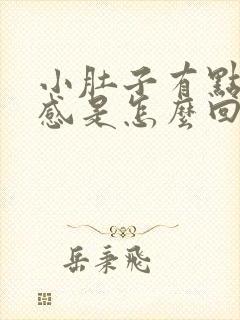 小肚子有點
感是怎麼回
岳秉飛